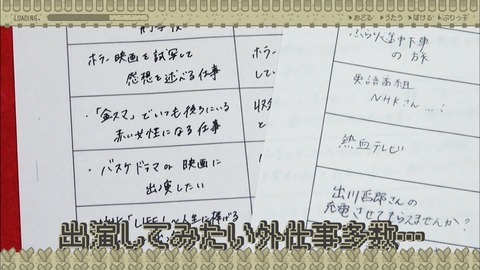 LOADING..
▶おどる ▶うたう ▶ぼける ▶ぶりっ子
ホラー映画を試写して
感想を述べる仕事
・「金スマ」でいつも後ろにいる
赤い女性になる仕事
・バスケドラマの映画に
出演したい
ホラー
してい
収録
ぶらり途中下車
の旅
英語番組
NHKさん…?
熱血テレビ
出川哲郎さんの
充電させてもらえませんか?
出演してみたい外仕事多数…